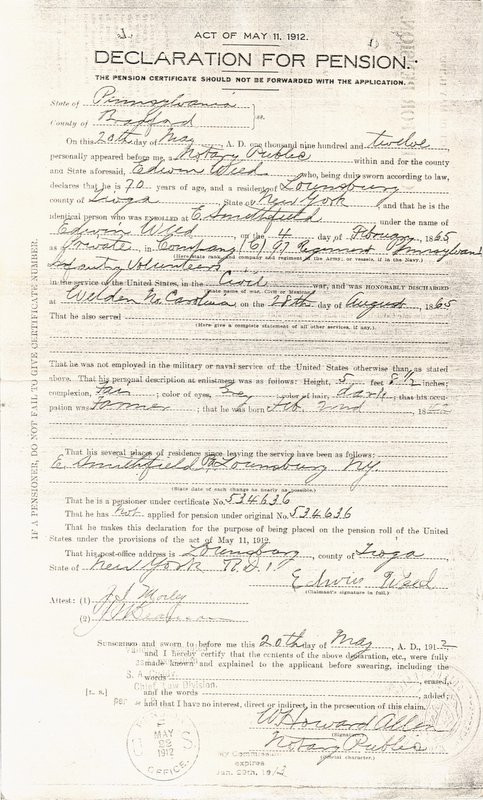 ACT OF MAY 11, 1912.
DECLARATION FOR PENSION.
THE PENSION CERTIFICATE SHOULD NOT BE FORWARDED WITH THE APPLICATION.
State of Pennsylvania
County of Bradford } ss.
On this 20th day of May A. D. one thousand nine hundred and twelve
personally appeared before me, Notary Public within and for the county
and State aforesaid, Edwin Weed who, being duly sworn according to law,
declares that he is 70 years of age, and a resident of Lounsbury
county of Tioga State of New York and that he is the
identical person who was ENROLLED at E. Smithfield under the name of
Edwin Weed on the 4 day of February, 1865
as Private in Company (C) 97 Regiment Pennsylvani
(Here state rank, and company and regiment in the Army, or vessels, if in the Navy.)
Infantry Volunteers
in the service of the United States, in the Civil war, and was HONORABLY DISCHARGED
(State name of war, Civil or Mexican.)
at Weldon No. Carolina on the 28th day of August, 1865
That he also served
(Here give a complete statement of all other services, if any.)
That he was not employed in the military or naval service of the United States otherwise than as stated
above. That his personal description at enlistment was as follows: Height, 5 feet 8 1/2 inches;
complexion, Fair; color of eyes, ; color of hair, dark; that his occu-
pation was Farmer; that he was born Feb. 2nd 18
That his several places of residence since leaving the service have been as follows:
E. Smithfield Pa Lounsbury NY
(State date of each change as nearly as possible.)
That he is a pensioner under certificate No. 534636
That he has applied for pension under original No. 534636
That he makes this declaration for the purpose of being placed on the pension roll of the United
States under the provisions of the act of May 11, 1912.
That his post-office address is Lounsbury, county of Tioga
State of New York R.D.1
Edwin Weed
(Claimant's signature in full.)
Attest: (1)
(2)
SUBSCRIBED and sworn to before me this 20th day of May, A. D., 1912
and I hereby certify that the contents of the above declaration, etc., were fully
made known and explained to the applicant before swearing, including the
words erased,
Chief, Law Division.
[L. S.] and the words added;
per and that I have no interest, direct or indirect, in the prosecution of this claim.
W. Howard Allen
(Signature)
Notary Public
(Official character.)
U S
MAY
1912
OFFICE
My Commission
expires
Jan. 29th, 191
IF A PENSIONER, DO NOT FAIL TO GIVE CERTIFICATE NUMBER.